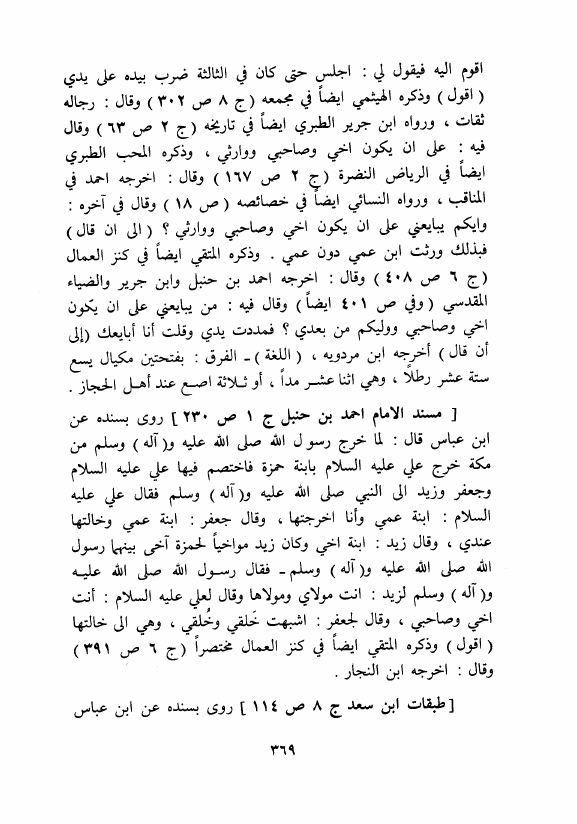 اقوم اليه فيقول لي : اجلس حتى كان في الثالثة ضرب بيده على يدي
( اقول ) وذكره الهيثمي ايضاً في مجمعه ( ج ٨ ص ٣٠٢ ) وقال : رجاله
ثقات ، ورواه ابن جرير الطبري ايضاً في تاريخه ( ج ٢ ص ٦٣ ) وقال
فيه : على ان يكون اخي وصاحبي ووارثي ، وذكره المحب الطبري
ايضاً في الرياض النضرة ( ج ٢ ص ١٦٧ ) وقال : اخرجه احمد في
المناقب ، ورواه النسائي ايضاً في خصائصه ( ص ١٨ ) وقال في آخره :
وايكم يبايعني على ان يكون اخي وصاحبي ووارثي ؟ ( الى ان قال )
فبذلك ورثت ابن عمي دون عمي . وذكره المتقي ايضاً في كنز العمال
( ج ٦ ص ٤٠٨ ) وقال : اخرجه احمد بن حنبل وابن جرير والضياء
المقدسي ( وفي ص ٤٠١ ايضاً ) وقال فيه : من يبايعني على ان يكون
اخي وصاحبي ووليكم من بعدي ؟ فمددت يدي وقلت أنا أبايعك (إلى
أن قال ) أخرجه ابن مردويه ، ( اللغة ) ـ الفرق : بفتحتين مكيال يسع
ستة عشر رطلاً ، وهي اثنا عشر مداً ، أو ثلاثة اصع عند أهل الحجاز .
[ مسند الامام احمد بن حنبل ج ١ ص ٢٣٠ ] روى بسنده عن
ابن عباس قال : لما خرج رسول الله صلى الله عليه و( آله ) وسلم من
مكة خرج علي عليه السلام بابنة حمزة فاختصم فيها علي عليه السلام
وجعفر وزيد الى النبي صلى الله عليه و( آله ) وسلم فقال علي عليه
السلام : ابنة عمي وأنا اخرجتها ، وقال جعفر : ابنة عمي وخالتها
عندي ، وقال زيد : ابنة اخي وكان زيد مواخياً لحمزة آخى بينهما رسول
الله صلى الله عليه و( آله ) وسلم ـ فقال رسول الله صلى الله عليه
و( آله ) وسلم لزيد : انت مولاي ومولاها وقال لعلي عليه السلام : أنت
اخي وصاحبي ، وقال لجعفر : اشبهت خَلقي وخُلقي ، وهي الى خالتها
( اقول ) وذكره المتقي ايضاً في كنز العمال مختصراً ( ج ٦ ص ٣٩١ )
وقال : اخرجه ابن النجار .
[ طبقات ابن سعد ج ٨ ص ١١٤ ] روى بسنده عن ابن عباس
٣٦٩